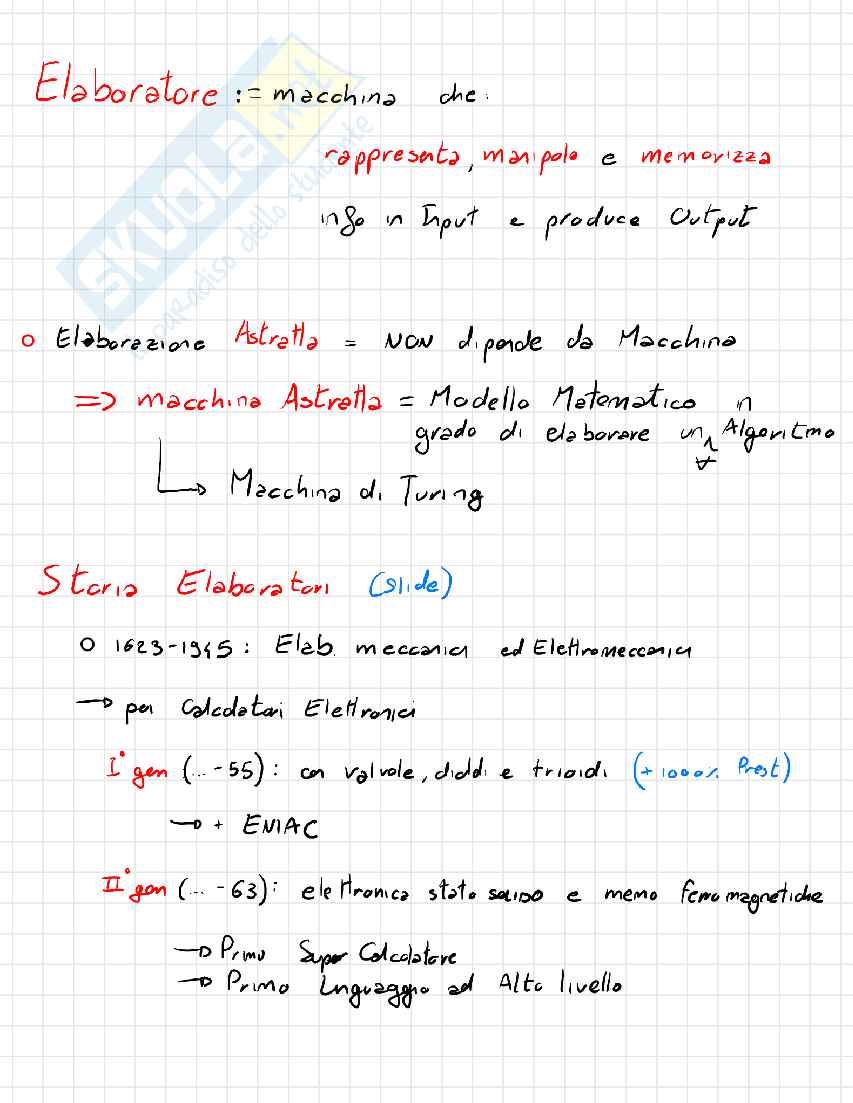 Elaboratore := macchina che:
rappresenta, manipola e memorizza
info in Input e produce Output
SKUOLA.net
il paradiso dello studente
o Elaborazione Astratta = NON dipende da Macchina
=> macchina Astratta = Modello Matematico in
grado di elaborare un Algoritmo
∀
→ Macchina di Turing
Storia Elaboratori (slide)
o 1623-1945: Elab. meccanici ed Elettromeccanici
→ poi Calcolatori Elettronici
I° gen (...-55): con valvole, diodi e triodi (+1000% Prest)
→ + ENIAC
II° gen (...-63): elettronica stato SOLIDO e memo ferromagnetiche
→ Primo Super Calcolatore
→ Primo Linguaggio ad Alto livello